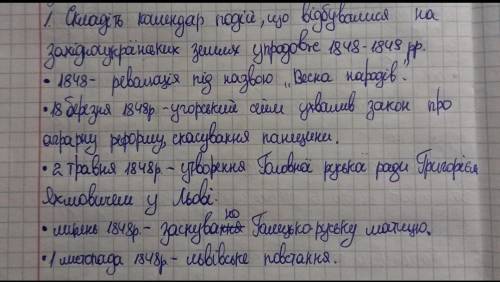 1. Складіть календар подій, що відбувалися на
західноукраїнських землях упродовж 1848-1848 рр.
• 1848 - революція під назвою „Весна народів".
• 18 березня 1848р - угорський сейм ухвалив закон про
аграрну реформу, скасування панщини.
• 2 травня 1848р. - утворення Головної руської ради Григорієм
Яхимовичем у Львові.
• липень 1848р. - засновано Галицько-руську матицю.
• 1 листопада 1848р - львівське повстання.